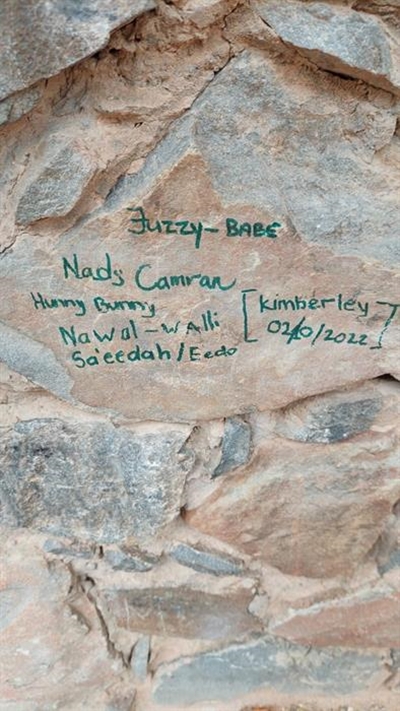 Fuzzy-BABE
Nads Camran
Hunny Bunny
Nawal-walli
Sa'eedah/Eedo
[Kimberley
02/10/2022]